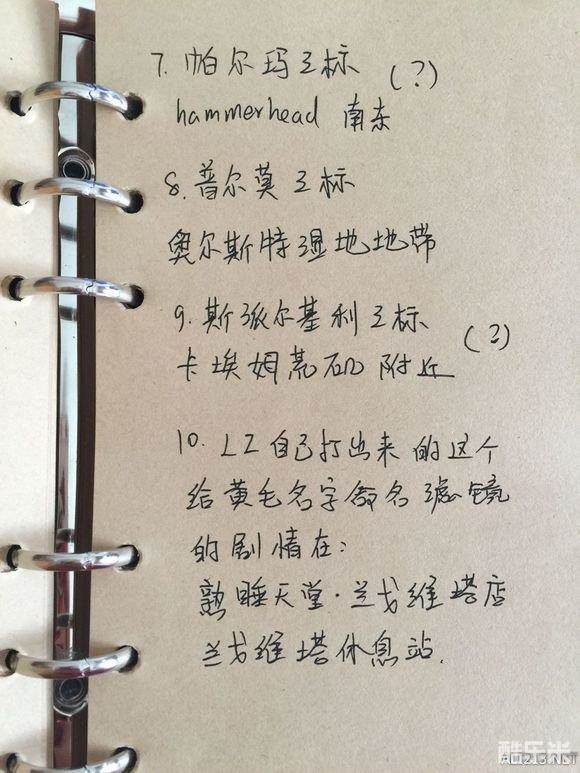 7. 帕尔玛王标 (?)
hammerhead 南东
8. 普尔莫王标
奥尔斯特湿地地带
9. 斯派尔基利王标 (?)
卡埃姆荒矿附近
10. LZ自己打出来的这个
给黄毛名字命名滤镜
的剧情在:
熟睡天堂·兰戈维塔店
兰戈维塔休息站.
酷乐米